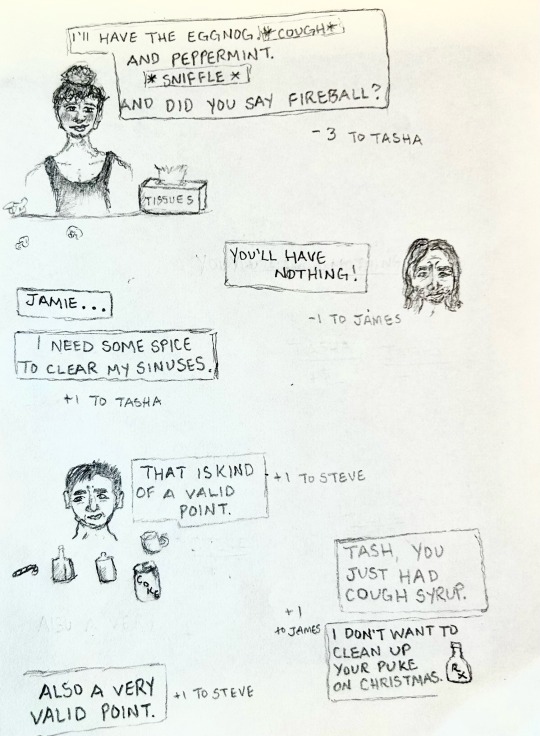 I'll HAVE THE EGGNOG *COUGH*
AND PEPPERMINT.
*SNIFFLE*
AND DID YOU SAY FIREBALL?
-3 TO TASHA
TISSUES
YOU'LL HAVE
NOTHING!
-1 TO JAMES
JAMIE...
I NEED SOME SPICE
TO CLEAR MY SINUSES.
+1 TO TASHA
THAT IS KIND
OF A VALID
POINT.
+1 TO STEVE
COKE
TASH, YOU
JUST HAD
COUGH SYRUP.
+1
TO JAMES
I DON'T WANT TO
CLEAN UP
YOUR PUKE
ON CHRISTMAS.
RX
ALSO A VERY
VALID POINT.
+1 TO STEVE